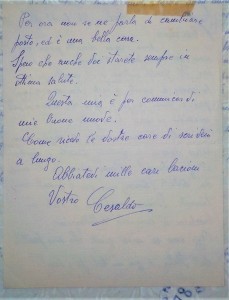 Per ora non se ne parla di cambiare
posto, ed è una bella cosa.
Spero che anche voi stiate sempre in
ottima salute.
Questa mia è per
mie buone nuove.
Come vostro
a lungo.
Abbiatevi mille cari bacioni
Vostro